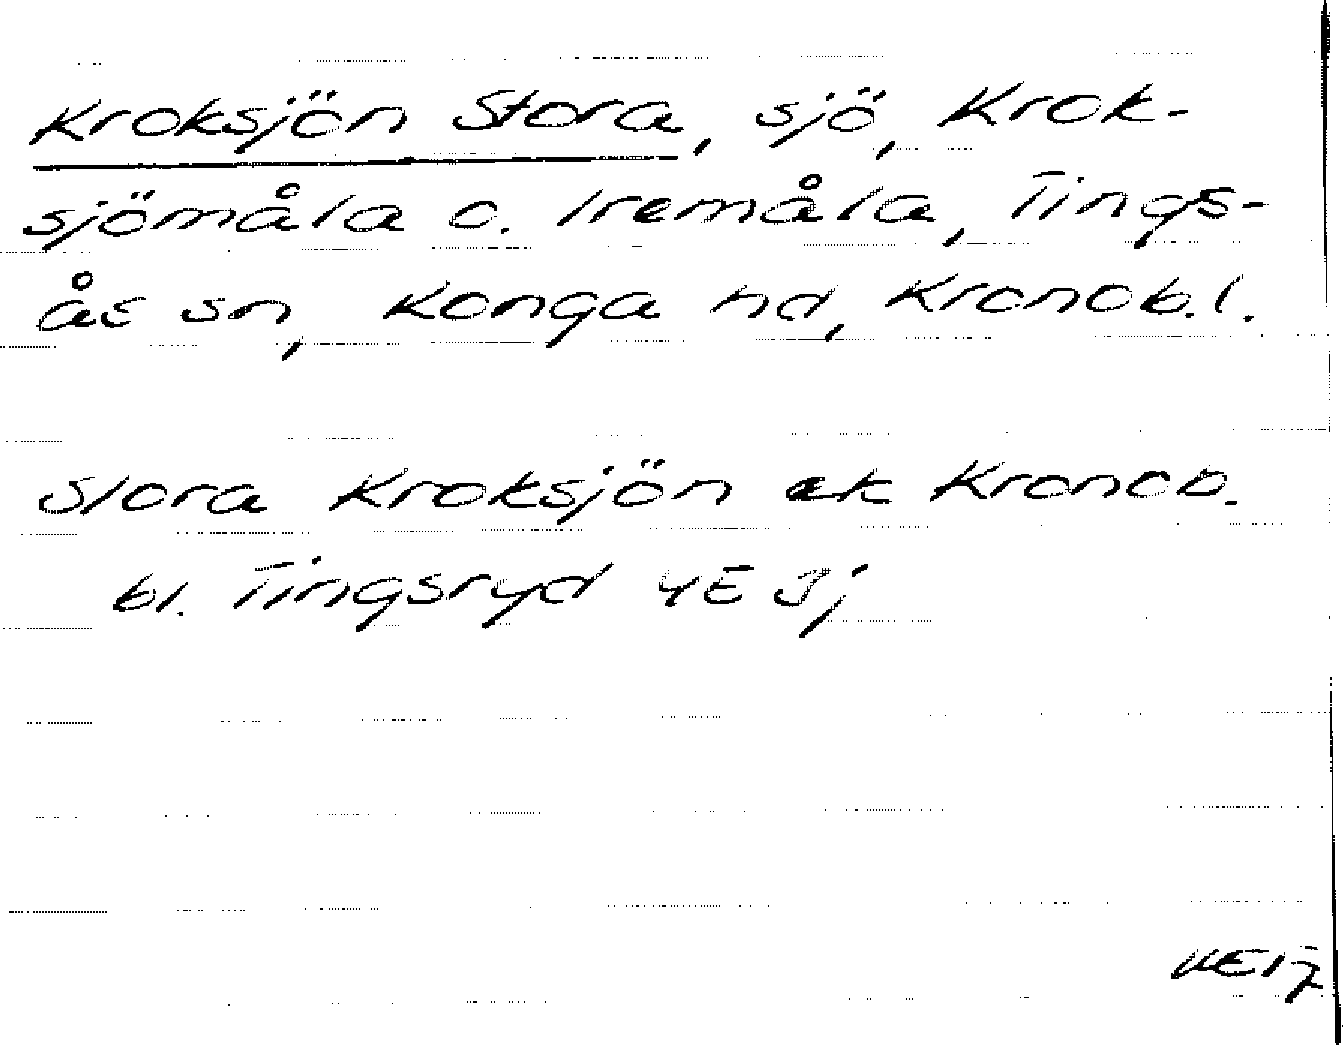 Kroksjön Stora, sjö, Krok-
sjömåla o. Iremåla, Tings-
ås sn, Konga hd, Kronob.l.
Stora Kroksjön ek Kronob.
bl. Tingsryd 4E Jj